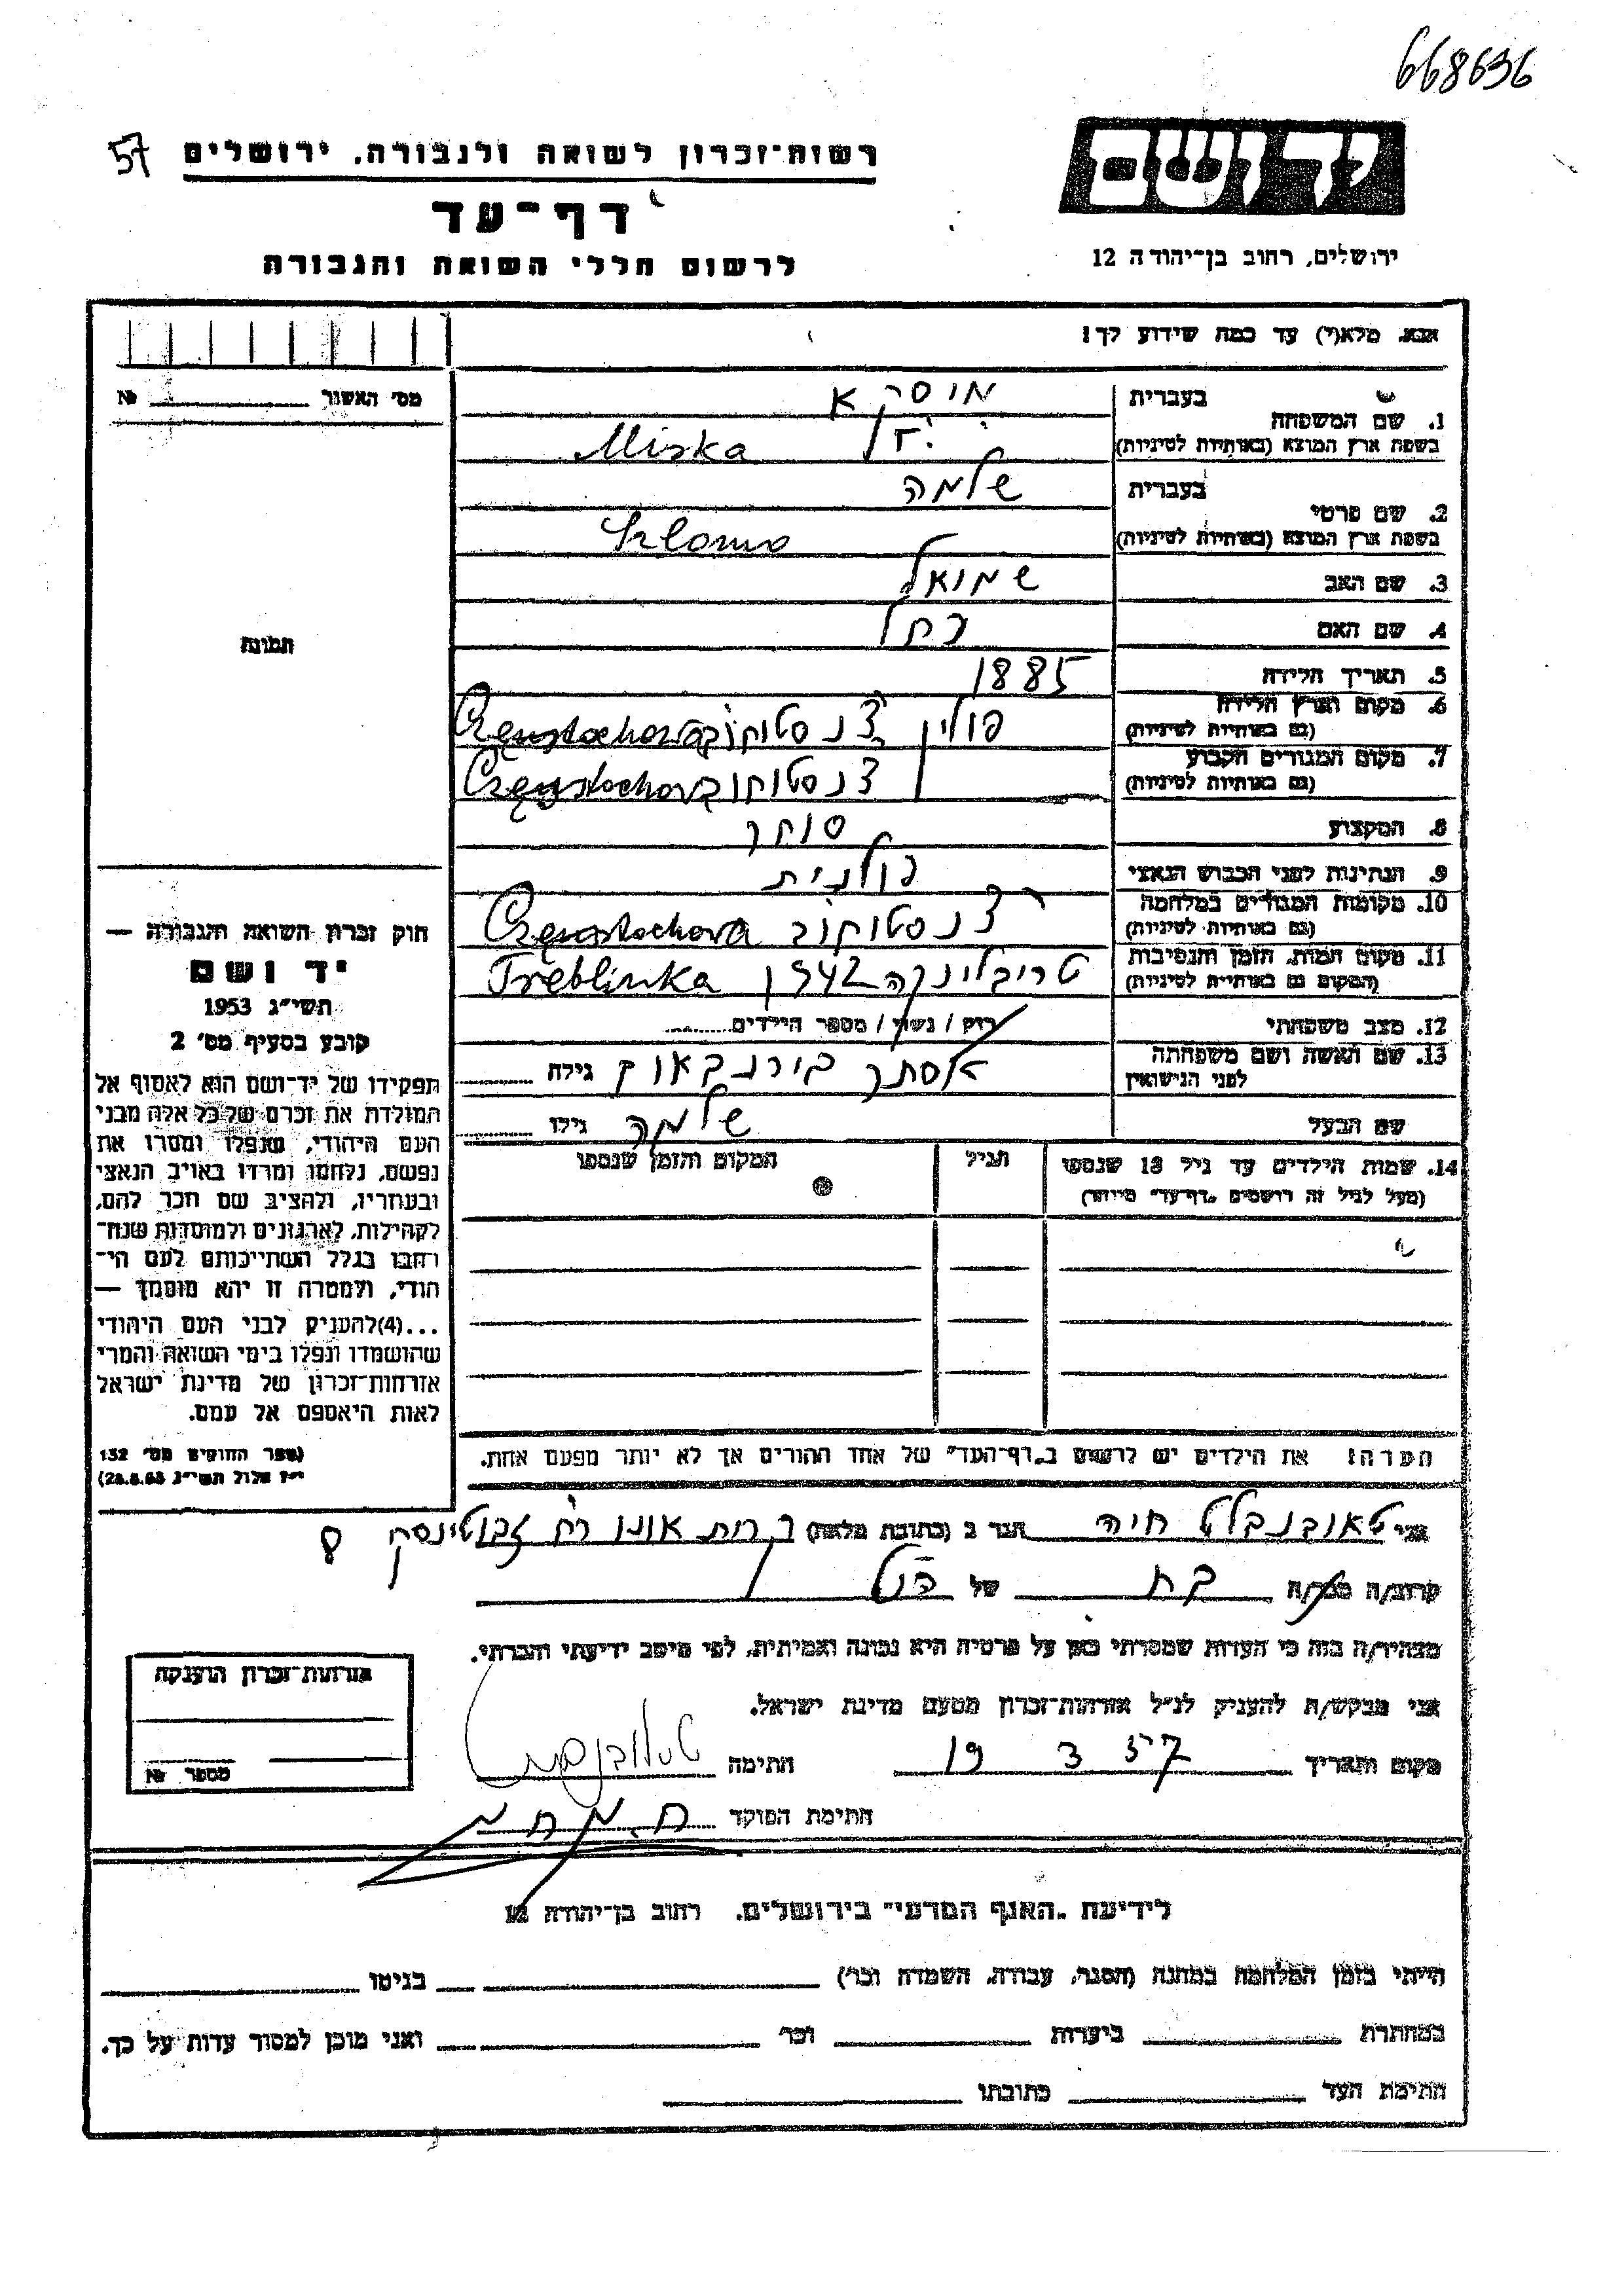 668636
57
רשות־זכרון לשואה ולגבורה, ירושלים
יד ושם
דף־עד
ירושלים, רחוב בן־יהודה 12
לרשום חללי השואה והגבורה
אנא, מלא(י) עד כמה שידוע לך!
מס' האשור №
1. שם המשפחה
בעברית
מוסקא
בשפת ארץ המוצא (באותיות לטיניות)
Miska
2. שם פרטי
בעברית
שלמה
בשפת ארץ המוצא (באותיות לטיניות)
Szlomo
3. שם האב שמואל
4. שם האם רחל
תמונה
5. תאריך הלידה 1885
6. מקום וארץ הלידה
(גם באותיות לטיניות)
פולין צ'נסטוחוב Czenstochova
7. מקום המגורים הקבוע
(גם באותיות לטיניות)
צ'נסטוחוב Częnstochova
8. המקצוע סוחר
9. הנתינות לפני הכבוש הנאצי פולנית
10. מקומות המגורים במלחמה
(גם באותיות לטיניות)
צ'נסטוחוב Częnstochova
11. מקום המות, הזמן והנסיבות
(המקום גם באותיות לטיניות)
טריבלינקה 1942 Treblinka
12. מצב משפחתי רוק / נשוי / מספר הילדים
13. שם האשה ושם משפחתה
לפני הנישואין
אסתר בירנבאום גילה
שם הבעל שלמה גילו
14. שמות הילדים עד גיל 18 שנספו
(מעל לגיל זה רושמים „דף־עד" מיוחד)
הגיל
המקום והזמן שנספו
הערה: את הילדים יש לרשום ב„דף־העד" של אחד ההורים אך לא יותר מפעם אחת.
חוק זכרון השואה והגבורה —
יד ושם
תשי״ג 1953
קובע בסעיף מס' 2
תפקידו של יד־ושם הוא לאסוף אל
המולדת את זכרם של כל אלה מבני
העם היהודי, שנפלו ומסרו את
נפשם, נלחמו ומרדו באויב הנאצי
ובעוזריו, ולהציב שם וזכר להם,
לקהילות, לארגונים ולמוסדות שנח־
רבו בגלל השתייכותם לעם הי־
הודי, ולמטרה זו יהא מוסמך —
...(4)להעניק לבני העם היהודי
שהושמדו ונפלו בימי השואה והמרי
אזרחות־זכרון של מדינת ישראל
לאות היאספם אל עמם.
(ספר החוקים מס' 132
י״ז אלול תשי״ג 28.8.53)
אני טאובנבלט חיה הגר ב (כתובת מלאה) קרית אונו רח' זבוטינסקי 8
קרוב/ה מכר/ה בת של הנ״ל
מצהיר/ה בזה כי העדות שמסרתי כאן על פרטיה היא נכונה ואמיתית, לפי מיטב ידיעתי והכרתי.
אני מבקש/ת להעניק לנ״ל אזרחות־זכרון מטעם מדינת ישראל.
מקום ותאריך 19 3 57 חתימה
חתימת הפוקד
אזרחות־זכרון הוענקה
מספר №
לידיעת „האגף המדעי" בירושלים, רחוב בן־יהודה 12
הייתי בזמן המלחמה במחנה (הסגר, עבודה, השמדה וכו') בגיטו
במחתרת ביערות וכו' ואני מוכן למסור עדות על כך.
חתימת העד כתובתו